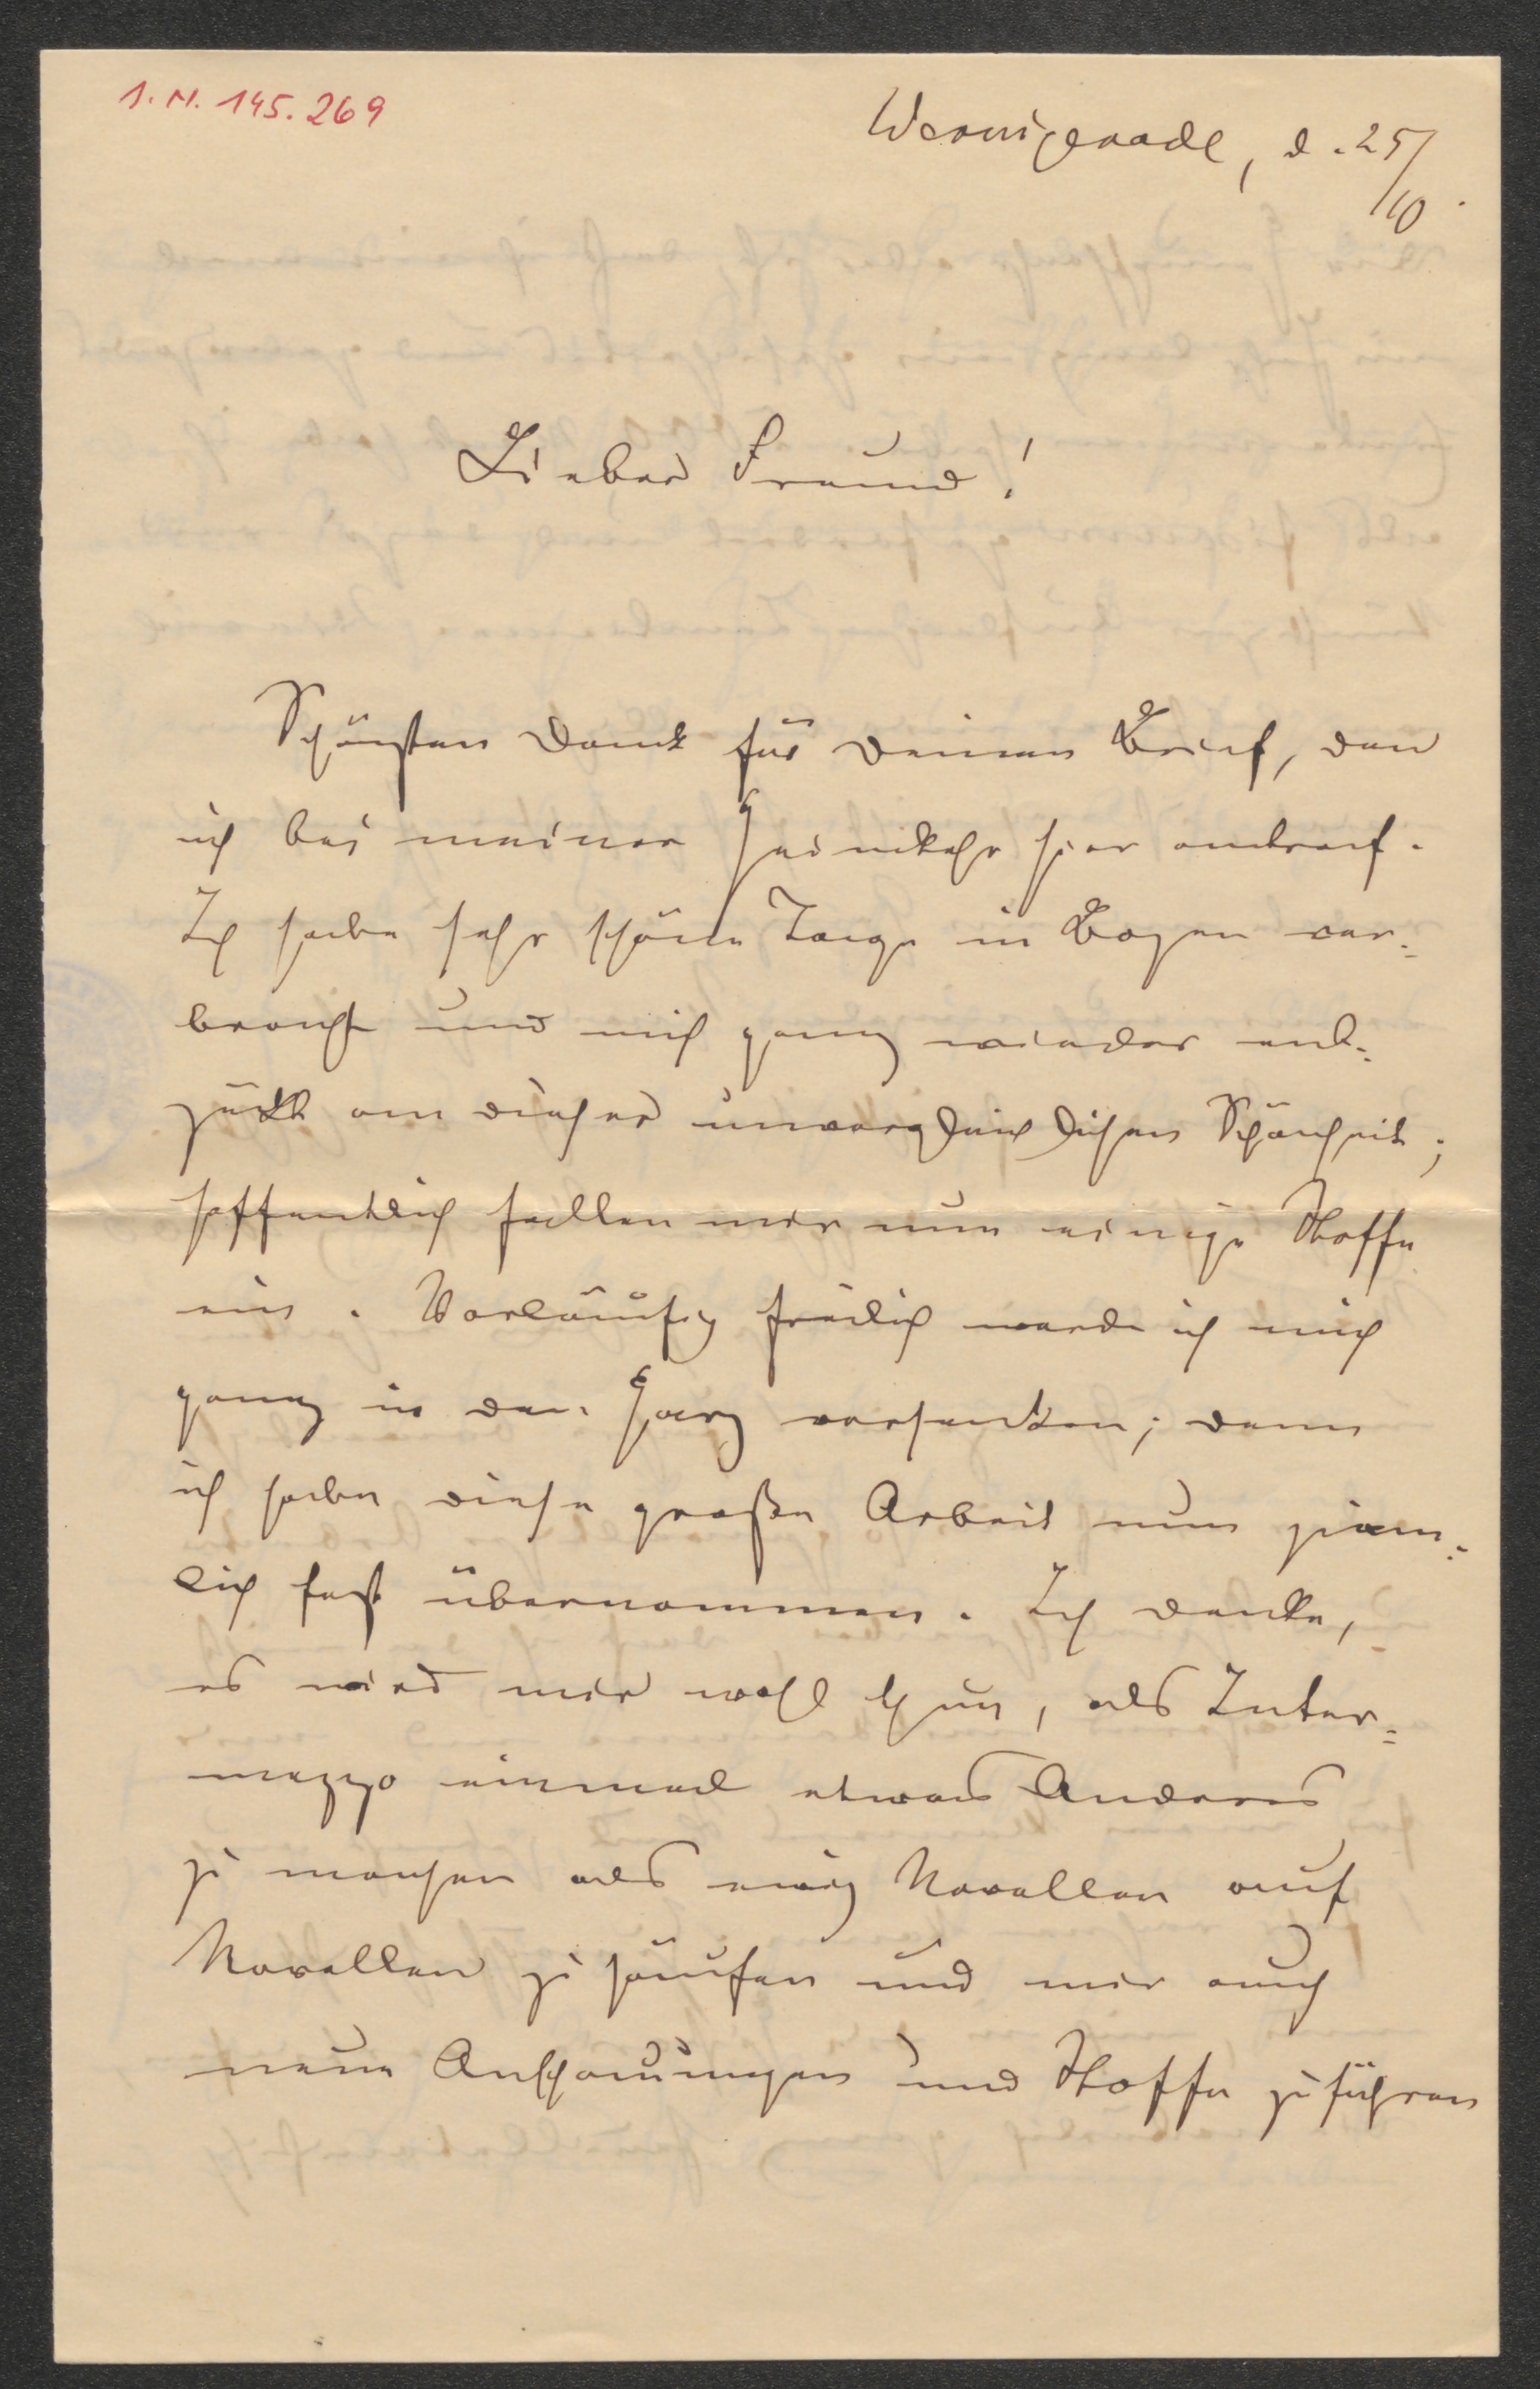 I. N. 145.269
Wernigerode, d. 25/10.
Lieber Freund!
Schönsten Dank für Deinen Brief, den
ich bei meiner Heimkehr hier antraf.
Ich habe sehr schöne Tage in Bozen ver-
bracht und mich ganz wieder ent-
zückt an dieser unvergleichlichen Schönheit;
hoffentlich fallen mir nun einige Stoffe
ein. Vorläufig freilich werde ich mich
ganz in den Harz versenken; denn
ich habe diese große Arbeit nun ziem-
lich fest übernommen. Ich denke,
es wird mir wohl thun, als Inter-
mezzo einmal etwas Anderes
zu machen als ewig Novellen auf
Novellen zu häufen und mir auch
neue Anschauungen und Stoffe zuführen